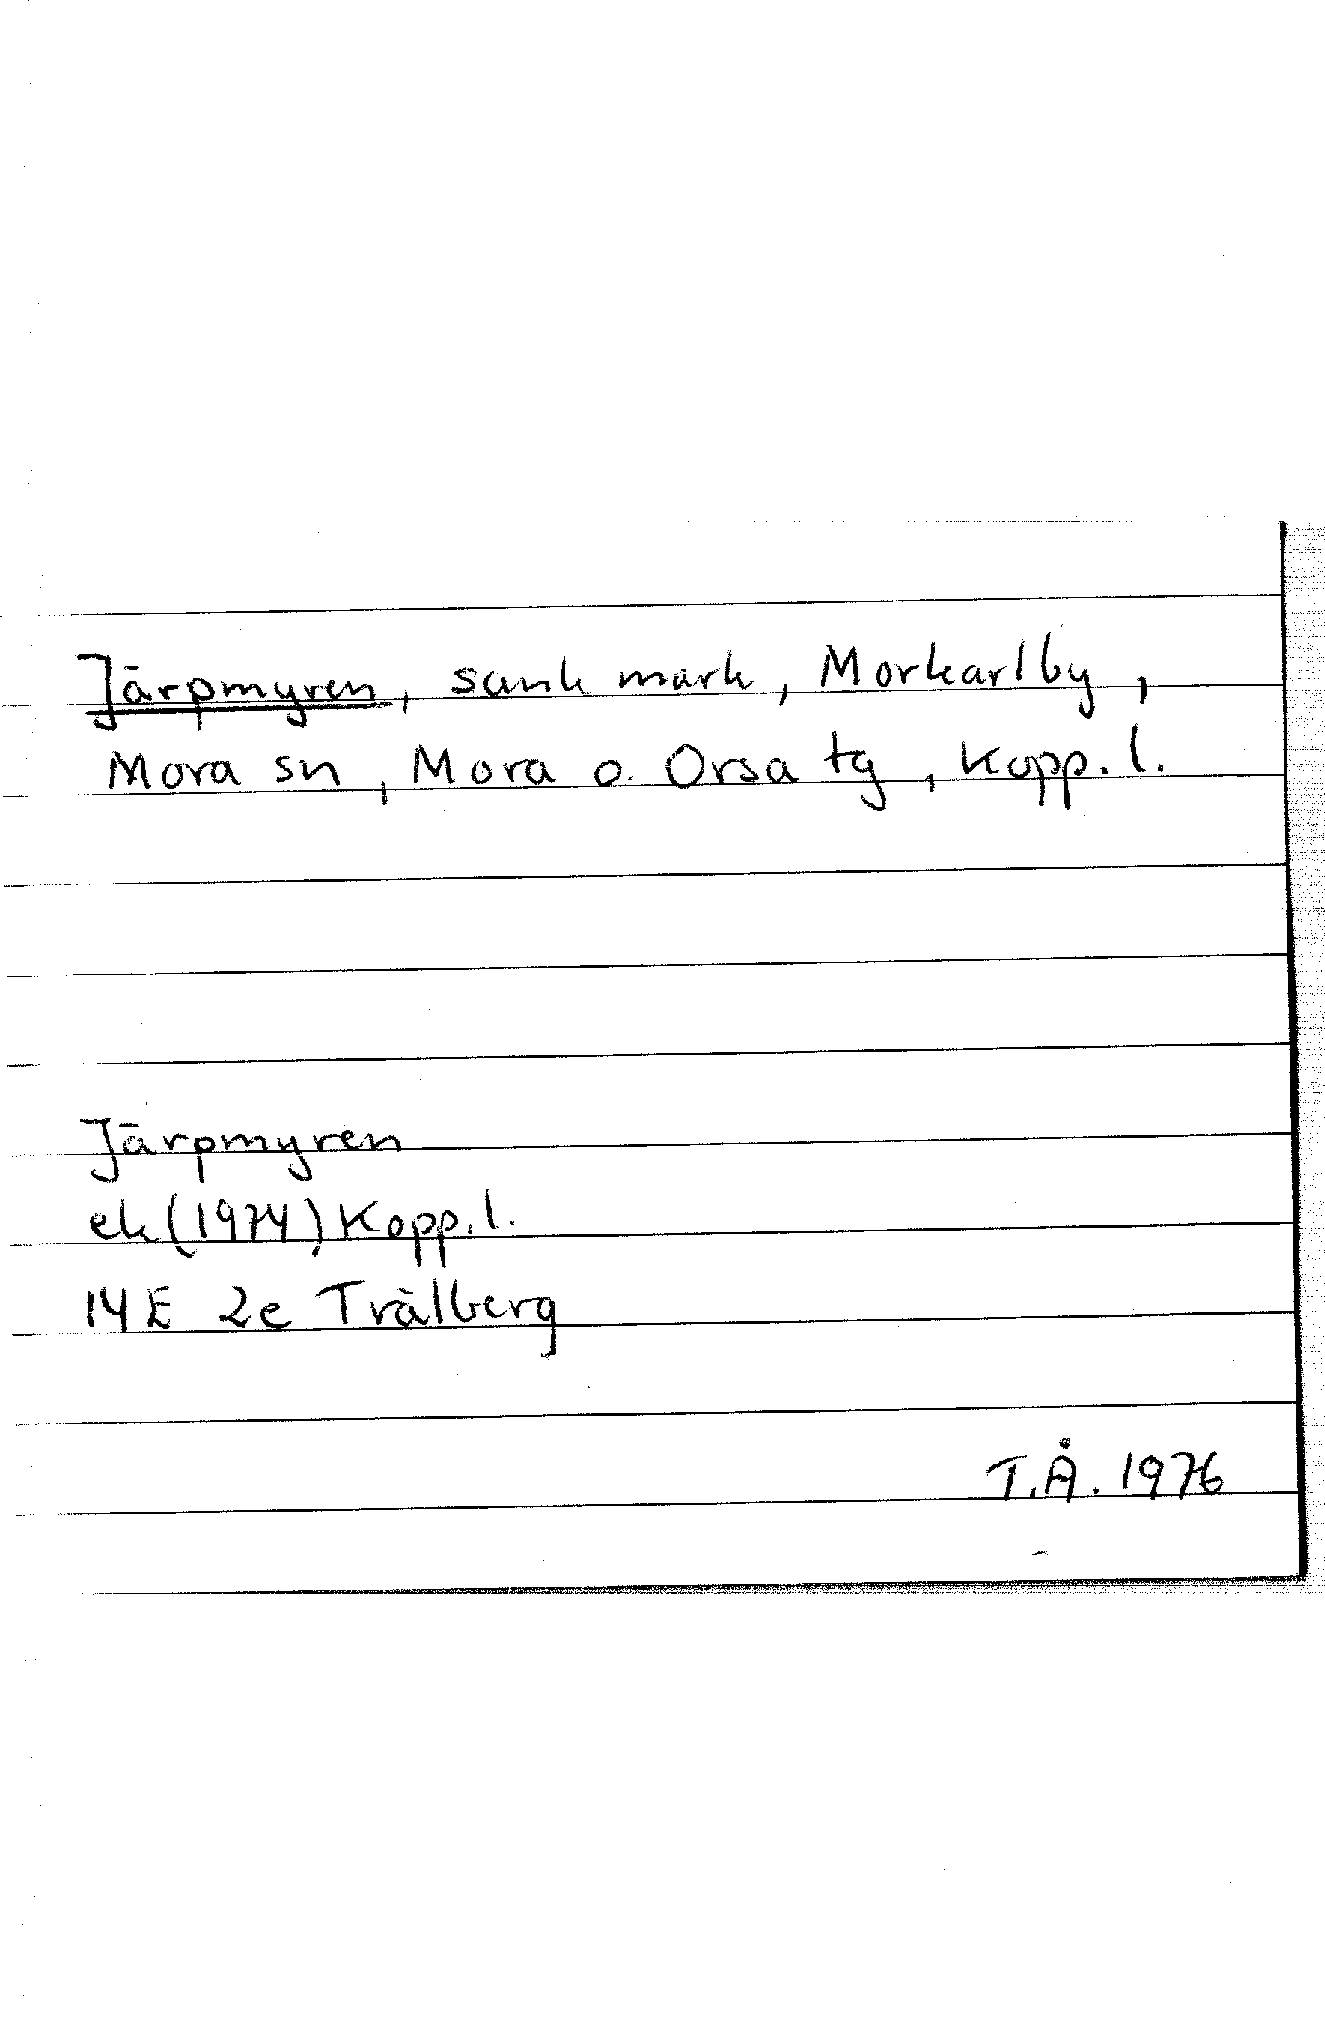 Järpmyren, sank mark, Morkarlby,
Mora sn, Mora o. Orsa tg, Kopp. l.
Järpmyren
ek (1974) Kopp. l.
14E 2e Trålberg
T.Å. 1976